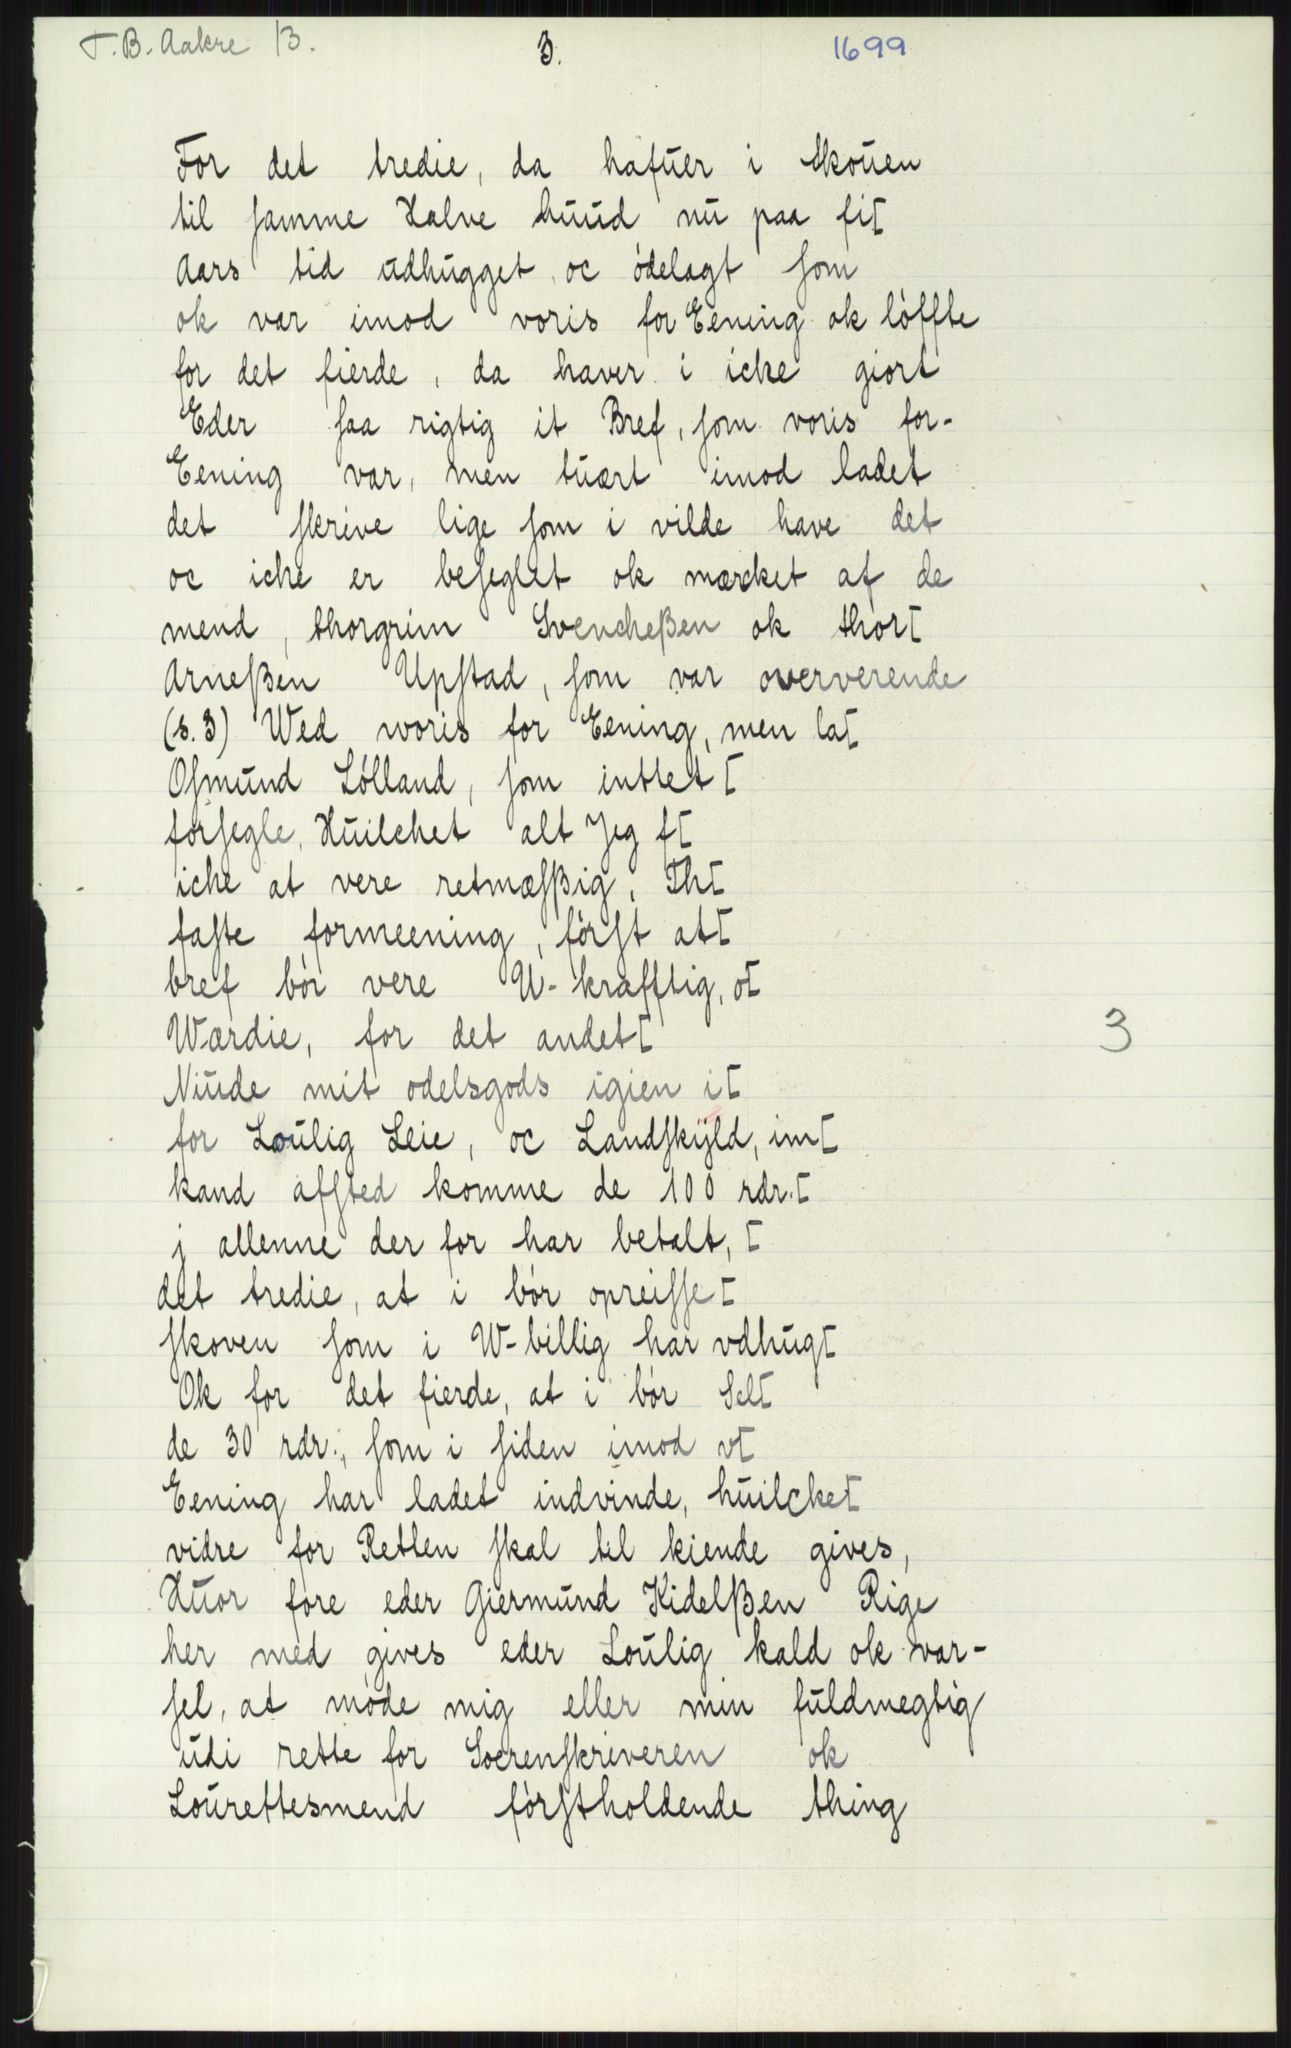 T.B. Aakre 13.
3.
1699
For det tredie, da hafuer i skouen
til samme Halve huud nu paa fi[
Aars tid udhugget oc ødelagt som
ok var imod voris for Eening ok løffte
for det fierde, da haver i icke giort
Eder saa rigtig it Bref, som voris for-
Eening var, men tuært imod ladet
det skrive lige som i vilde have det
oc icke er beseglet ok mærcket af de
mend, thorgrim Svencheßen ok thor[
Arneßen Upstad, som var oververende
(s. 3) Wed woris for Eening, men la[
Osmund Lølland, som inttet [
forsegle, Huilchet alt Jeg f[
icke at vere retmæsßig, Th[
faste formeening, først at[
bref bør vere U-krafftig, o[
Wærdie, for det andet[
Niude mit odelsgods igien i[
for Loulig Leie, oc Landskÿld, im[
kand affsted komme de 100 rdr.[
j allenne der for har betalt, [
det tredie, at i bør opreisse[
skoven som i W-billig har vdhug[
Ok for det fierde, at i bør Sel[
de 30 rdr., som i siden imod v[
Eening har ladet indvinde, huilcke[
vidre for Retten skal til kiende gives,
Huor fore eder Giermund Kidelßen Rige
her med gives eder Loulig kald ok var-
sel, at møde mig eller min fuldmegtig
udi rette for Soerenskriveren ok
Lourettesmend førstholdende thing
3